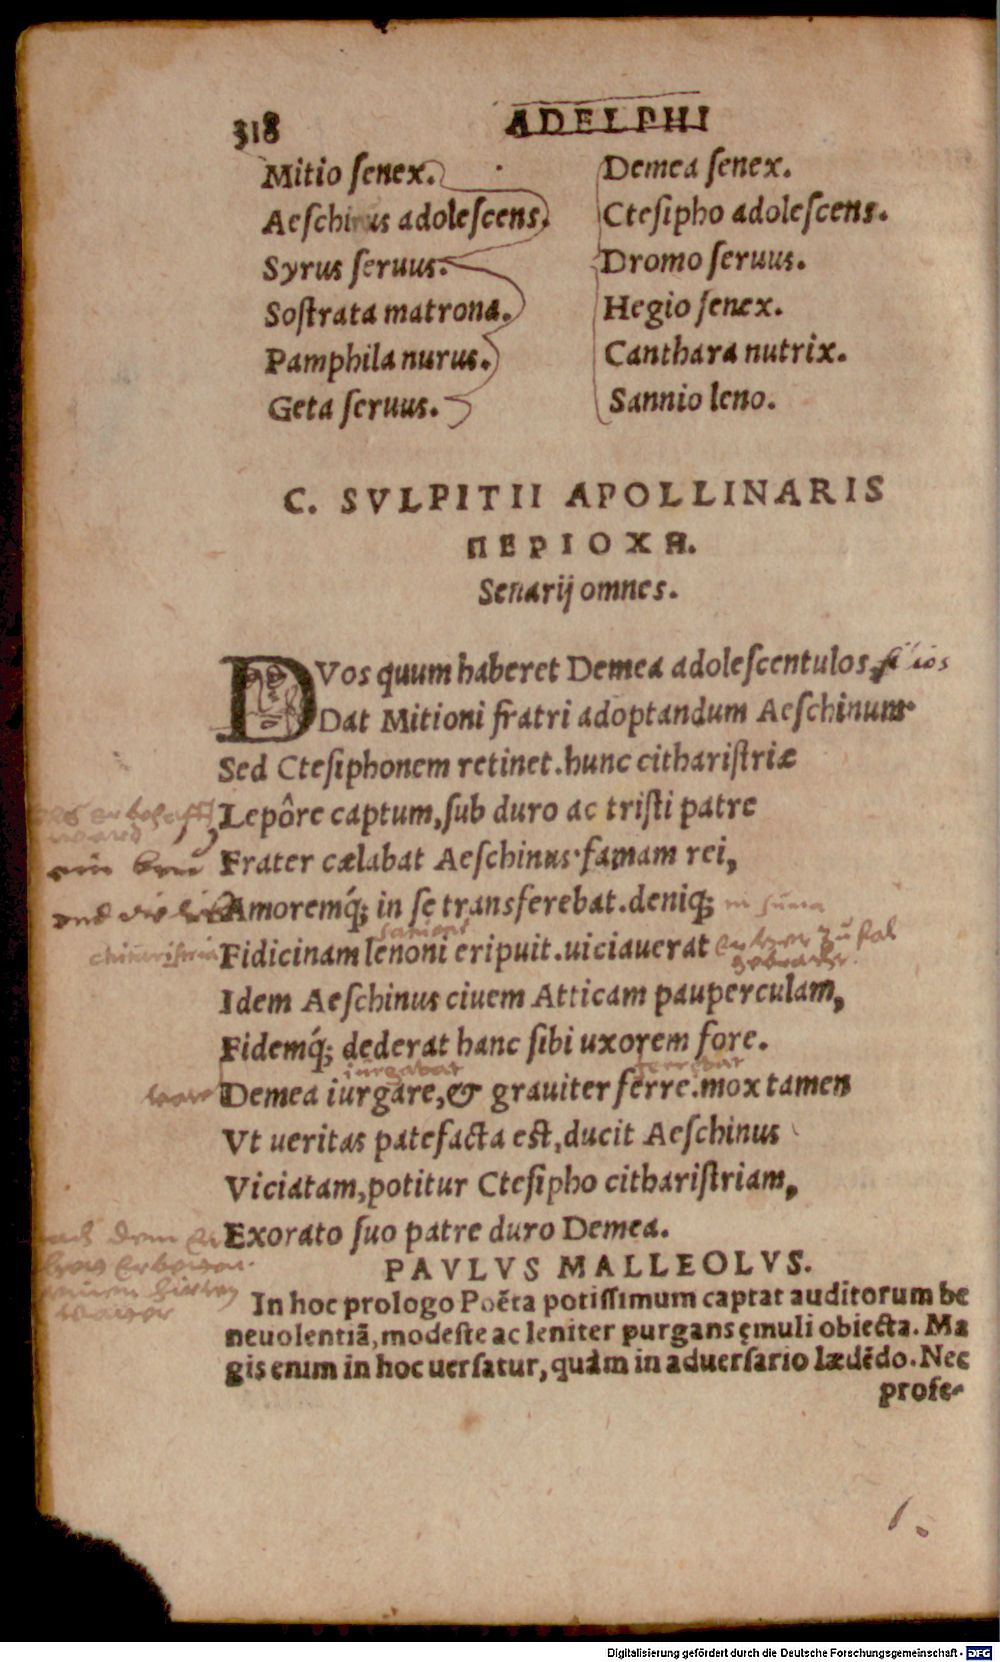 318 ADELPHI
Mitio ſenex. Demea ſenex.
Aeſchinus adoleſcens. Cteſipho adoleſcens.
Syrus ſeruus. Dromo ſeruus.
Soſtrata matrona. Hegio ſenex.
Pamphila nurus. Canthara nutrix.
Geta ſeruus. Sannio leno.
C. SVLPITII APOLLINARIS
ΠΕΡΙΟΧΗ.
Senarij omnes.
DVos quum haberet Demea adoleſcentulos, filios
Dat Mitioni fratri adoptandum Aeſchinum.
Sed Cteſiphonem retinet. hunc cithariſtriæ
Lepôre captum, ſub duro ac triſti patre
Frater cælabat Aeſchinus. famam rei,
Amoremq́; in ſe transferebat. deniq; in ſuma
Fidicinam lenoni eripuit. uiciauerat
Idem Aeſchinus ciuem Atticam pauperculam,
Fidemq́; dederat hanc ſibi uxorem fore.
iurgabat ferrebat
Demea iurgare, & grauiter ferre. mox tamen
Vt ueritas patefacta eſt, ducit Aeſchinus
Viciatam, potitur Cteſipho cithariſtriam,
Exorato ſuo patre duro Demea.
PAVLVS MALLEOLVS.
In hoc prologo Poëta potiſſimum captat auditorum be
neuolentiā, modeſte ac leniter purgans ęmuli obiecta. Ma
gis enim in hoc uerſatur, quàm in aduerſario lædēdo. Nec
profe-
Digitalisierung gefördert durch die Deutsche Forschungsgemeinschaft - DFG